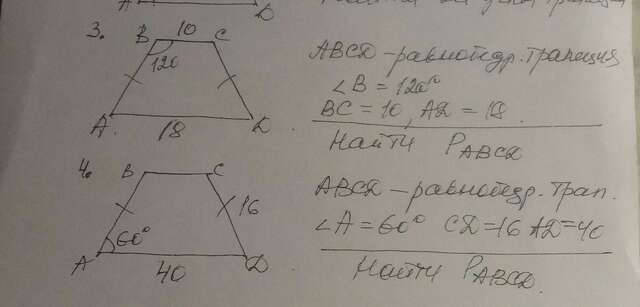 A
D
3.
B 10 C
120
A 18 D
ABCD - равнобедр. трапеция
∠B = 120°
BC = 10, AD = 18.
Найти P ABCD
4.
B C
16
60°
A 40 D
ABCD - равнобедр. трап.
∠A = 60° CD = 16 AD = 40
Найти P ABCD.